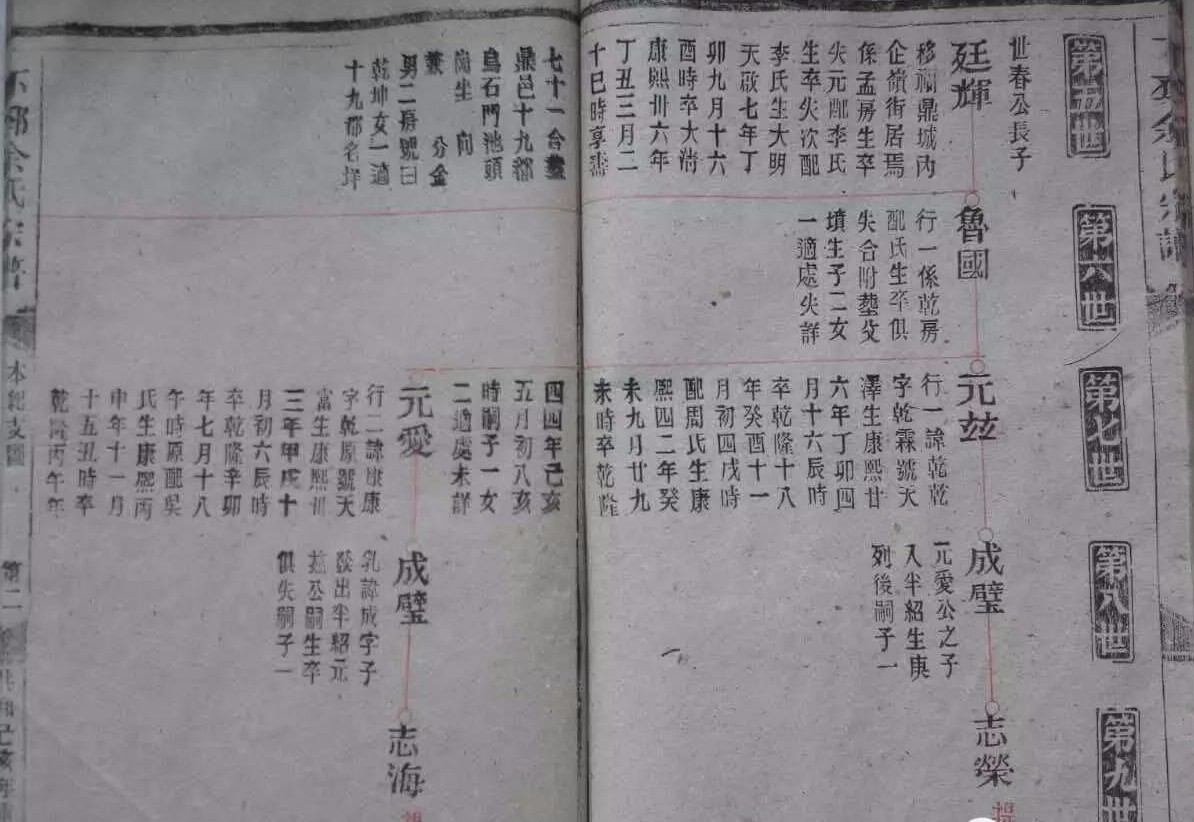 余氏宗譜
第五世
第六世
第七世
第八世
第九世
世春公長子
廷輝
移福鼎城內
企嶺街居焉
係孟房生卒
失元配李氏
生卒失次配
李氏生大明
天啟七年丁
卯九月十六
酉時卒大清
康熙卅六年
丁丑三月二
十巳時享壽
七十一合塟
鼎邑十九都
烏石門池頭
崗坐向
兼分金
男二房號曰
乾坤女一適
十九都名垟
魯國
行一係乾房
配氏生卒俱
失合附塟父
墳生子二女
一適處失詳
元玆
行一諱乾乾
字乾霖號天
澤生康熙廿
六年丁卯四
月十六辰時
卒乾隆十八
年癸酉十一
月初四戌時
配周氏生康
熙四二年癸
未九月廿九
未時卒乾隆
四四年己亥
五月初八亥
時嗣子一女
二適處未詳
元愛
行二諱康康
字乾原號天
富生康熙卅
三年甲戌十
月初六辰時
卒乾隆辛卯
年七月十八
午時原配吳
氏生康熙丙
申年十一月
十五丑時卒
乾隆丙午年
成璧
元愛公之子
入半紹生庚
列後嗣子一
成璧
乳諱成字子
出半紹元
玆公嗣生卒
俱失嗣子一
志榮
志海
余氏宗譜
本紀支圖
第二